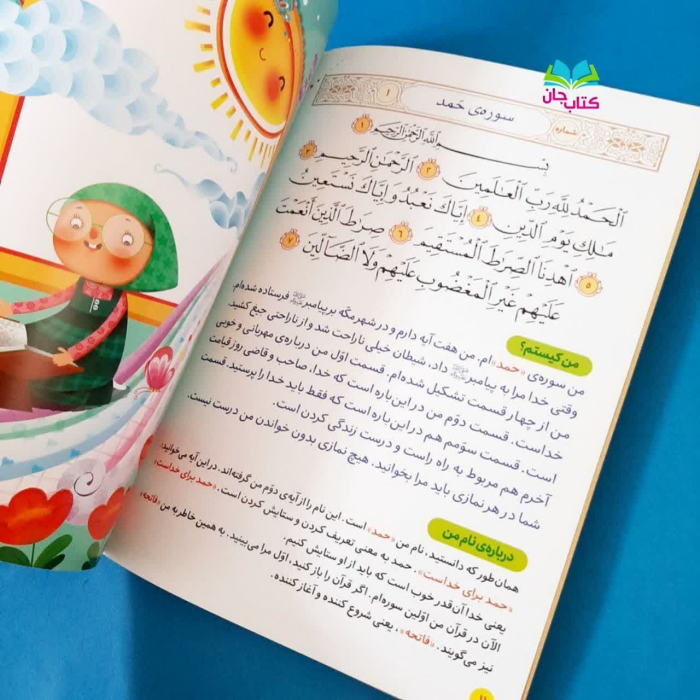 کتاب جان
سوره‌ی حَمد
شماره
۱
بِسْمِ اللَّهِ الرَّحْمَٰنِ الرَّحِيمِ ۱
الْحَمْدُ لِلَّهِ رَبِّ الْعَالَمِينَ ۲ الرَّحْمَٰنِ الرَّحِيمِ ۳
مَالِكِ يَوْمِ الدِّينِ ۴ إِيَّاكَ نَعْبُدُ وَإِيَّاكَ نَسْتَعِينُ
۵ اهْدِنَا الصِّرَاطَ الْمُسْتَقِيمَ ۶ صِرَاطَ الَّذِينَ أَنْعَمْتَ
عَلَيْهِمْ غَيْرِ الْمَغْضُوبِ عَلَيْهِمْ وَلَا الضَّالِّينَ ۷
من کیستم؟
من سوره‌ی «حمد» ام. من هفت آیه دارم و در شهر مکّه بر پیامبر فرستاده شده‌ام.
وقتی خدا مرا به پیامبر داد، شیطان خیلی ناراحت شد و از ناراحتی جیغ کشید.
من از چهار قسمت تشکیل شده‌ام. قسمت اوّل من درباره‌ی مهربانی و خوبی
خداست. قسمت دوّم من در این باره است که خدا، صاحب و قاضی روز قیامت
است. قسمت سوّمم هم در این باره است که فقط باید خدا را پرستید. قسمت
آخرم هم مربوط به راه راست و درست زندگی کردن است.
شما در هر نمازی باید مرا بخوانید. هیچ نمازی بدون خواندن من درست نیست.
درباره‌ی نام من
همان طور که دانستید، نام من «حمد» است. این نام را از آیه‌ی دوّم من گرفته‌اند. در این آیه می‌خوانید:
«حمد برای خداست». حمد به معنی تعریف کردن و ستایش کردن است. «حمد برای خداست»
یعنی خدا آن قدر خوب است که باید از او ستایش کنیم.
الآن در قرآن من اوّلین سوره‌ام. اگر قرآن را باز کنید، اوّل مرا می‌بینید. به همین خاطر به من «فاتحه»
نیز می‌گویند. «فاتحه»، یعنی شروع کننده و آغاز کننده.